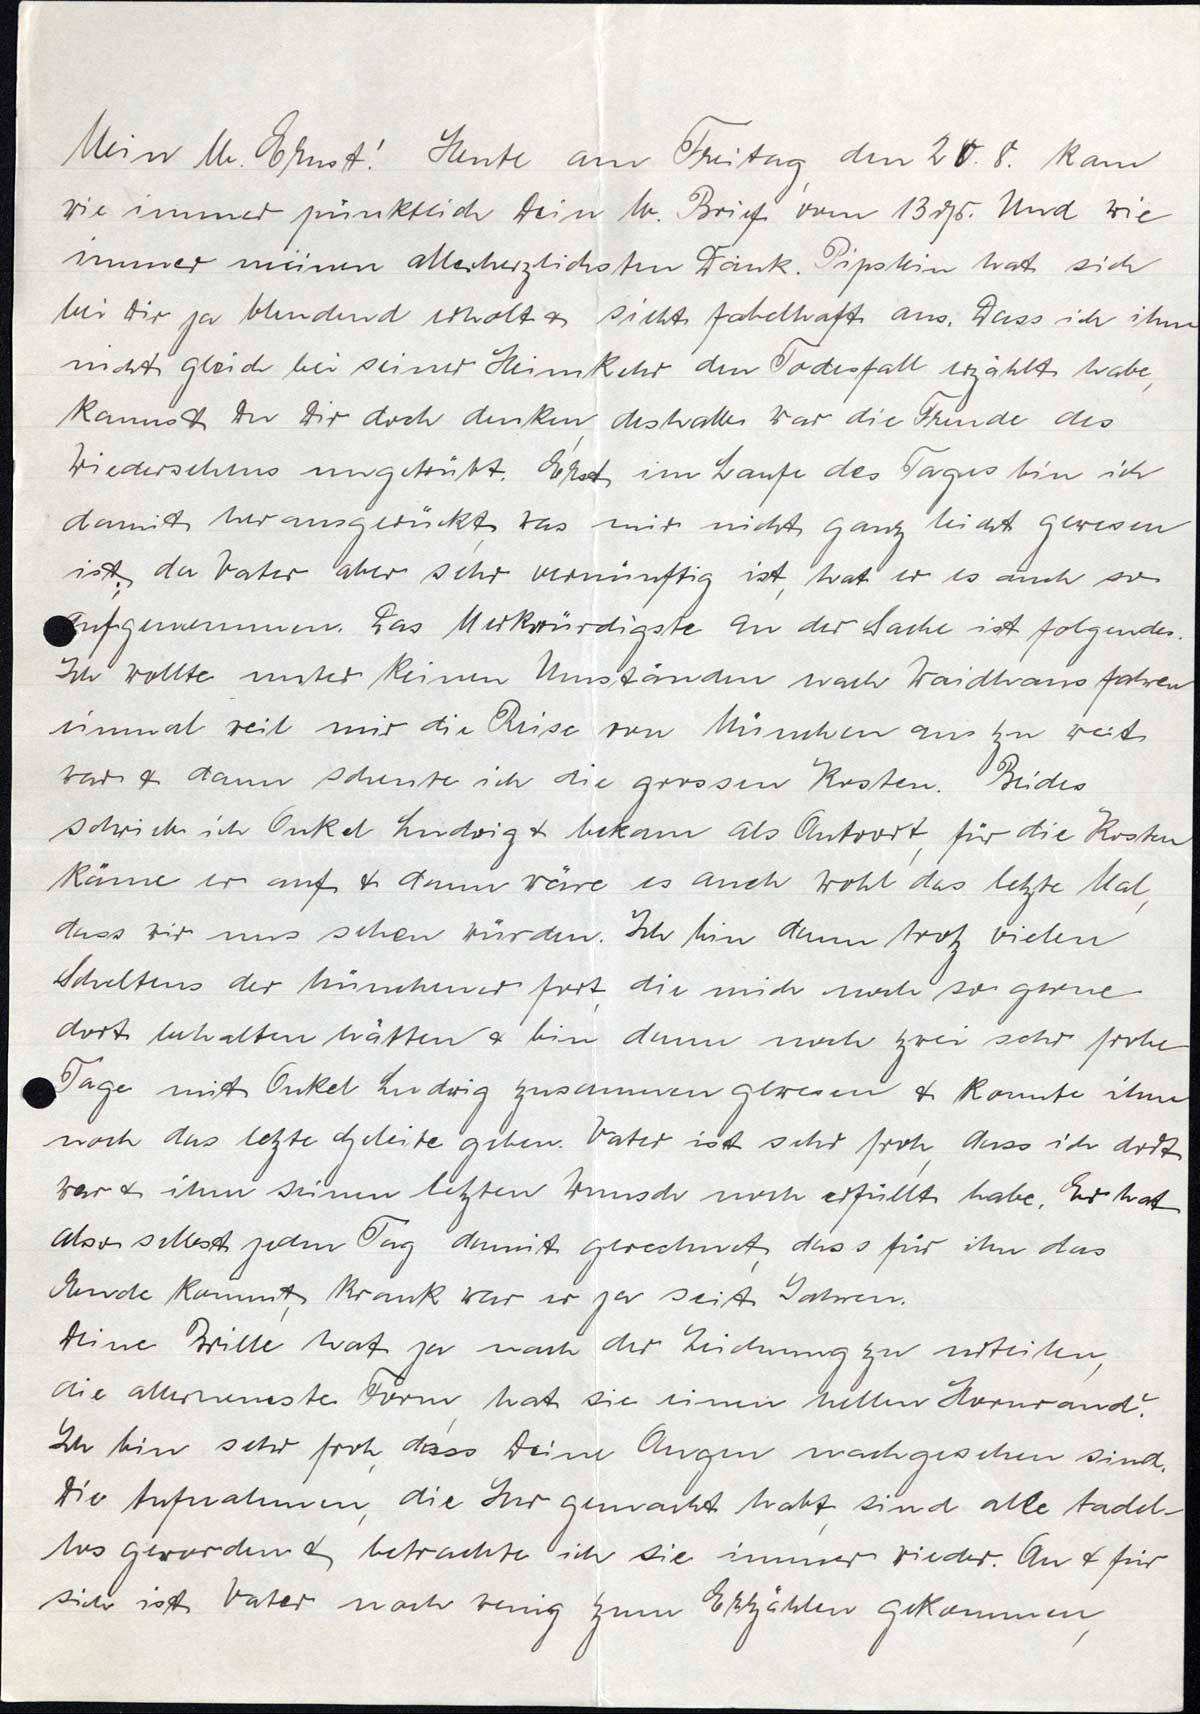 Mein lb. Ernst! Heute am Freitag, den 20. 8. kam
wie immer pünktlich Dein lb. Brief vom 13 ds. Und wie
immer meinen allerherzlichsten Dank. Pipslein hat sich
bei Dir ja blendend erholt & sieht fabelhaft aus. Dass ich ihm
nicht gleich bei seiner Heimkehr den Todesfall erzählt habe,
kannst Du Dir doch denken, deshalb war die Freude des
Wiedersehens ungetrübt. Erst im Laufe des Tages bin ich
damit herausgerückt, was mir nicht ganz leicht gewesen
ist, da Vater aber sehr vernünftig ist, hat er es auch so
aufgenommen. Das Merkwürdigste an der Sache ist folgendes.
Ich wollte unter keinen Umständen nach Waidhaus fahren
einmal weil mir die Reise von München aus zu weit
war & dann scheute ich die grossen Kosten. Beides
schrieb ich Onkel Ludwig & bekam als Antwort, für die Kosten
käme er auf & dann wäre es auch wohl das letzte Mal,
dass wir uns sehen würden. Ich bin dann trotz vielen
Scheltens der Münchener fort, die mich noch so gerne
dort behalten hätten & bin dann noch zwei sehr frohe
Tage mit Onkel Ludwig zusammen gewesen & konnte ihm
noch das letzte Geleite geben. Vater ist sehr froh, dass ich dort
war & ihm seinen letzten Wunsch noch erfüllt habe. Er hat
also selbst jeden Tag damit gerechnet, dass für ihn das
Ende kommt, krank war er ja seit Jahren.
Deine Brille hat ja nach der Zeichnung zu urteilen,
die allerneueste Form, hat sie einen hellen Hornrand?
Ich bin sehr froh, dass Deine Augen nachgesehen sind.
Die Aufnahmen, die Ihr gemacht habt, sind alle tadel-
los geworden & betrachte ich sie immer wieder. An & für
sich ist Vater noch wenig zum Erzählen gekommen,